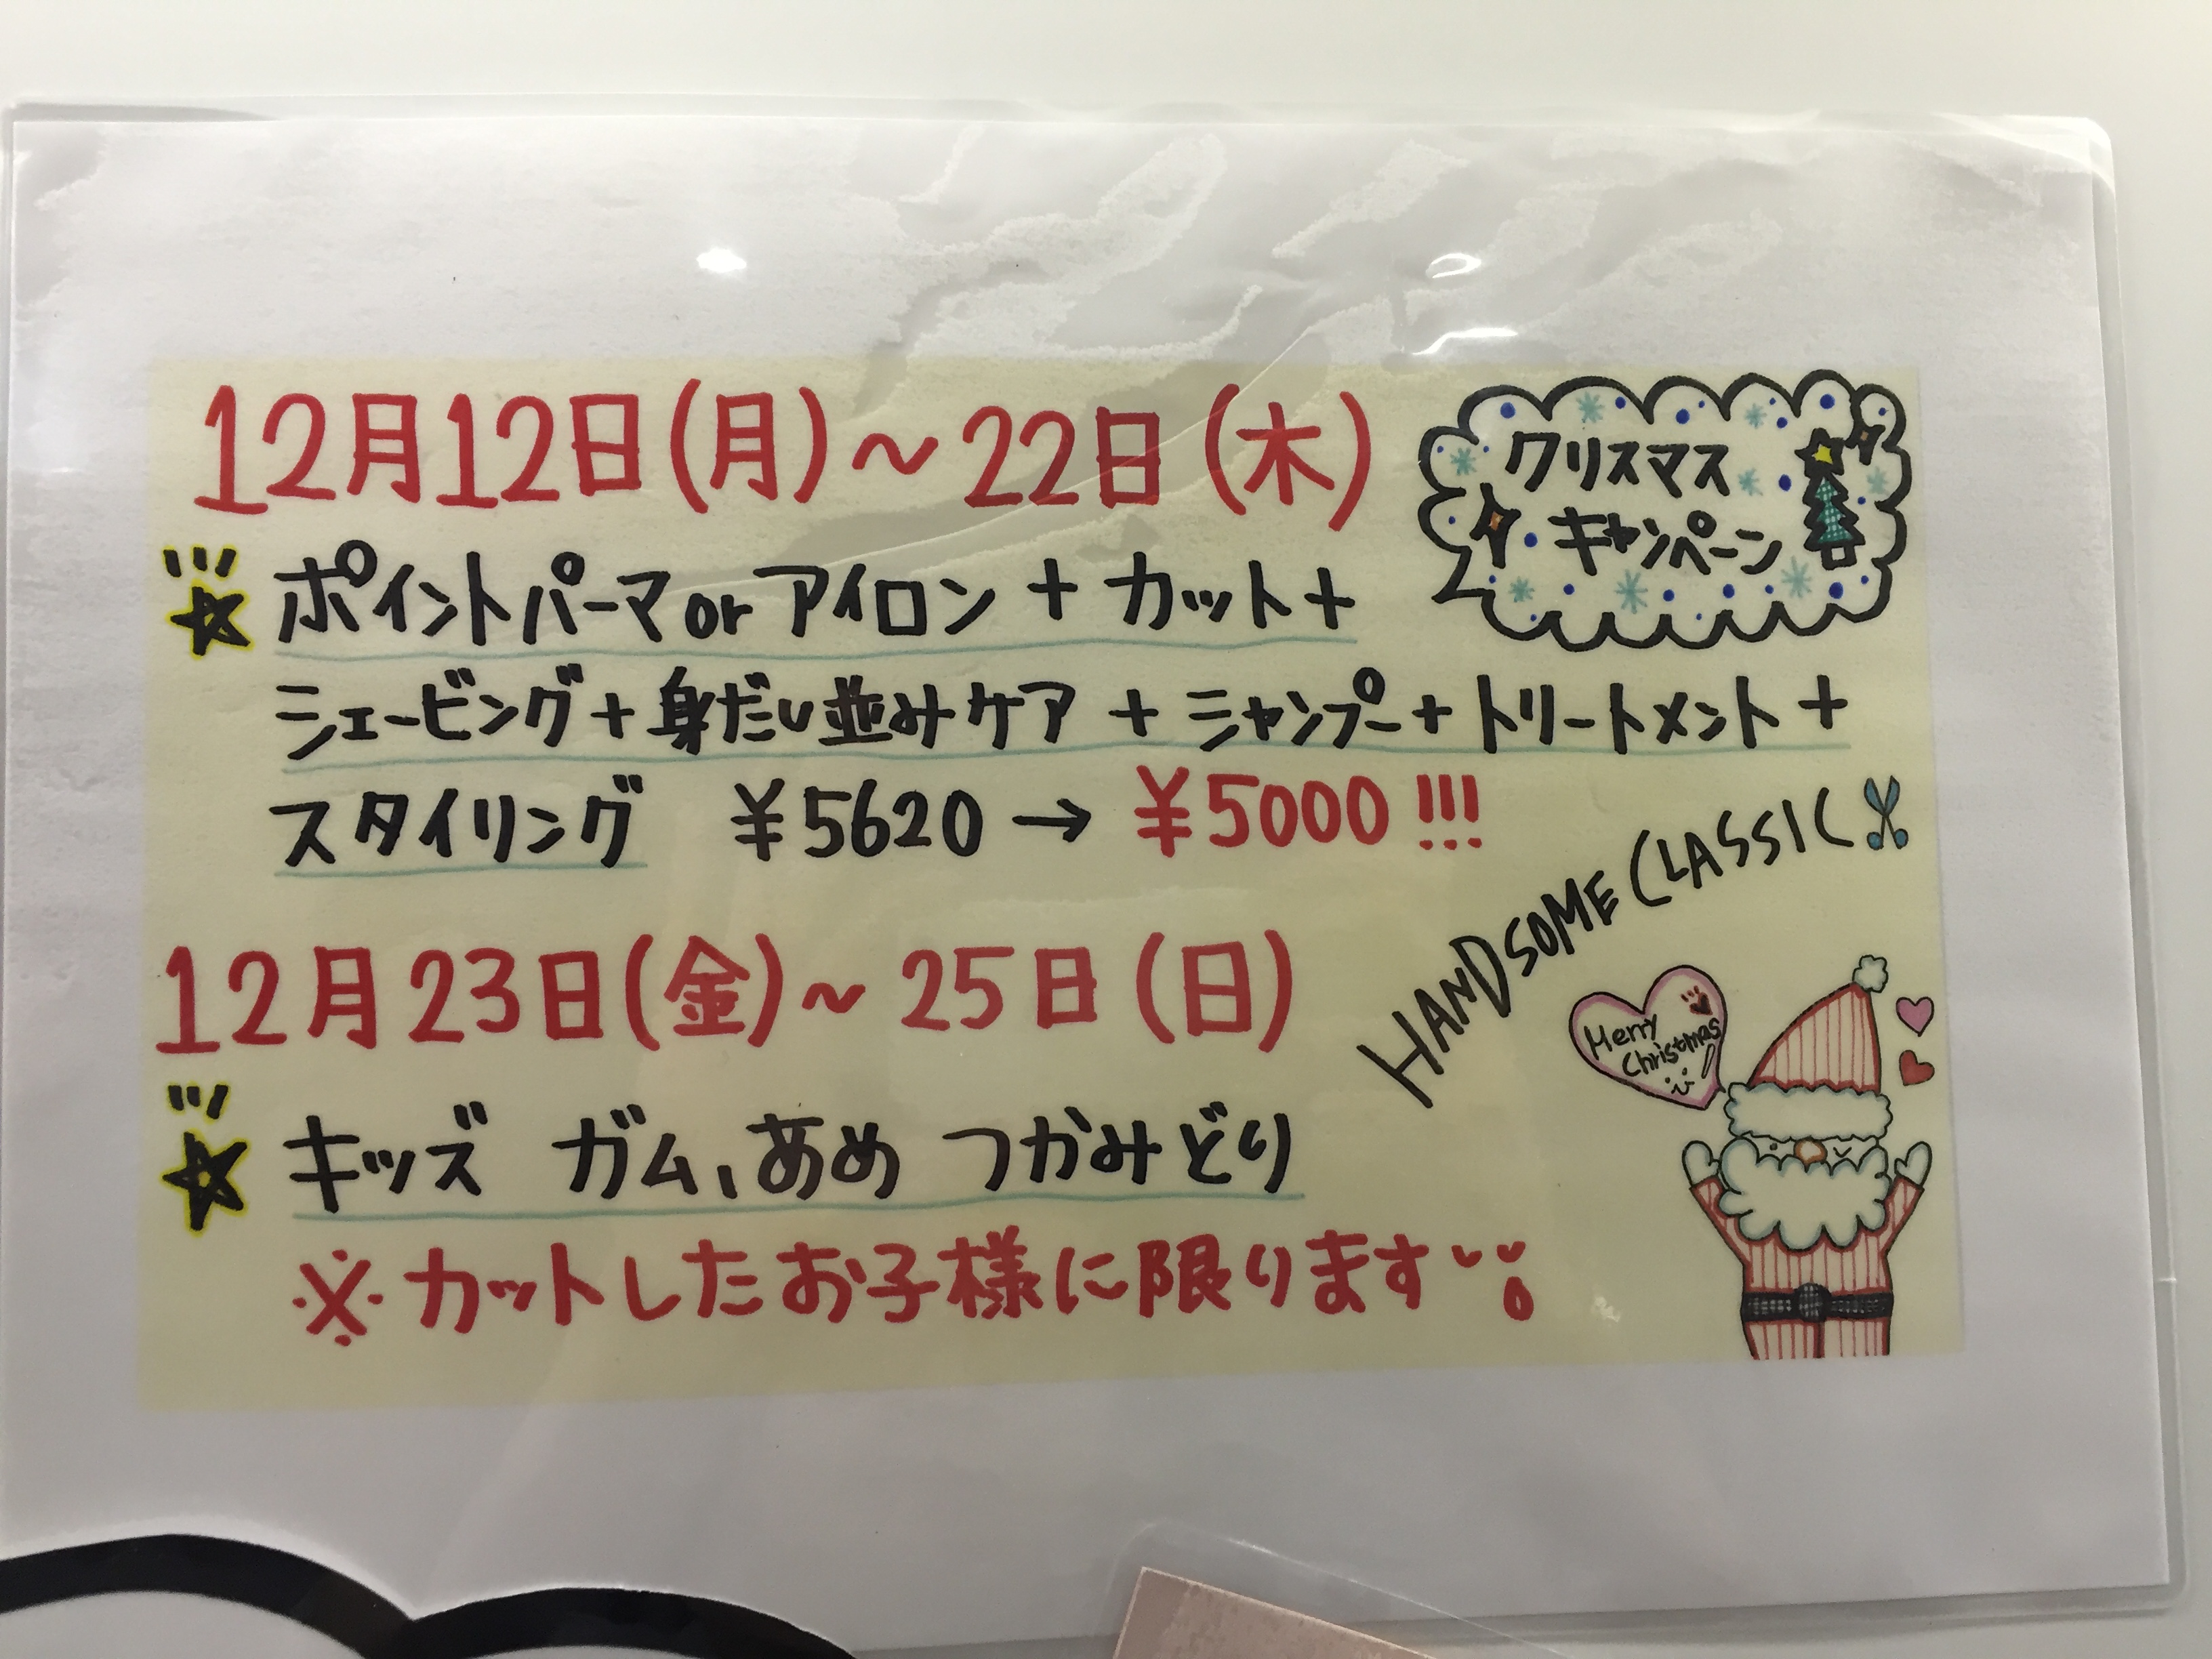 12月12日(月)~22日(木)
クリスマス
キャンペーン
ポイントパーマorアイロン+カット+
シェービング+身だし並みケア+シャンプー+トリートメント+
スタイリング ¥5620→¥5000!!!
HANDSOME CLASSIC
12月23日(金)~25日(日)
Merry
Christmas
キッズ ガム、あめ つかみどり
※カットしたお子様に限ります